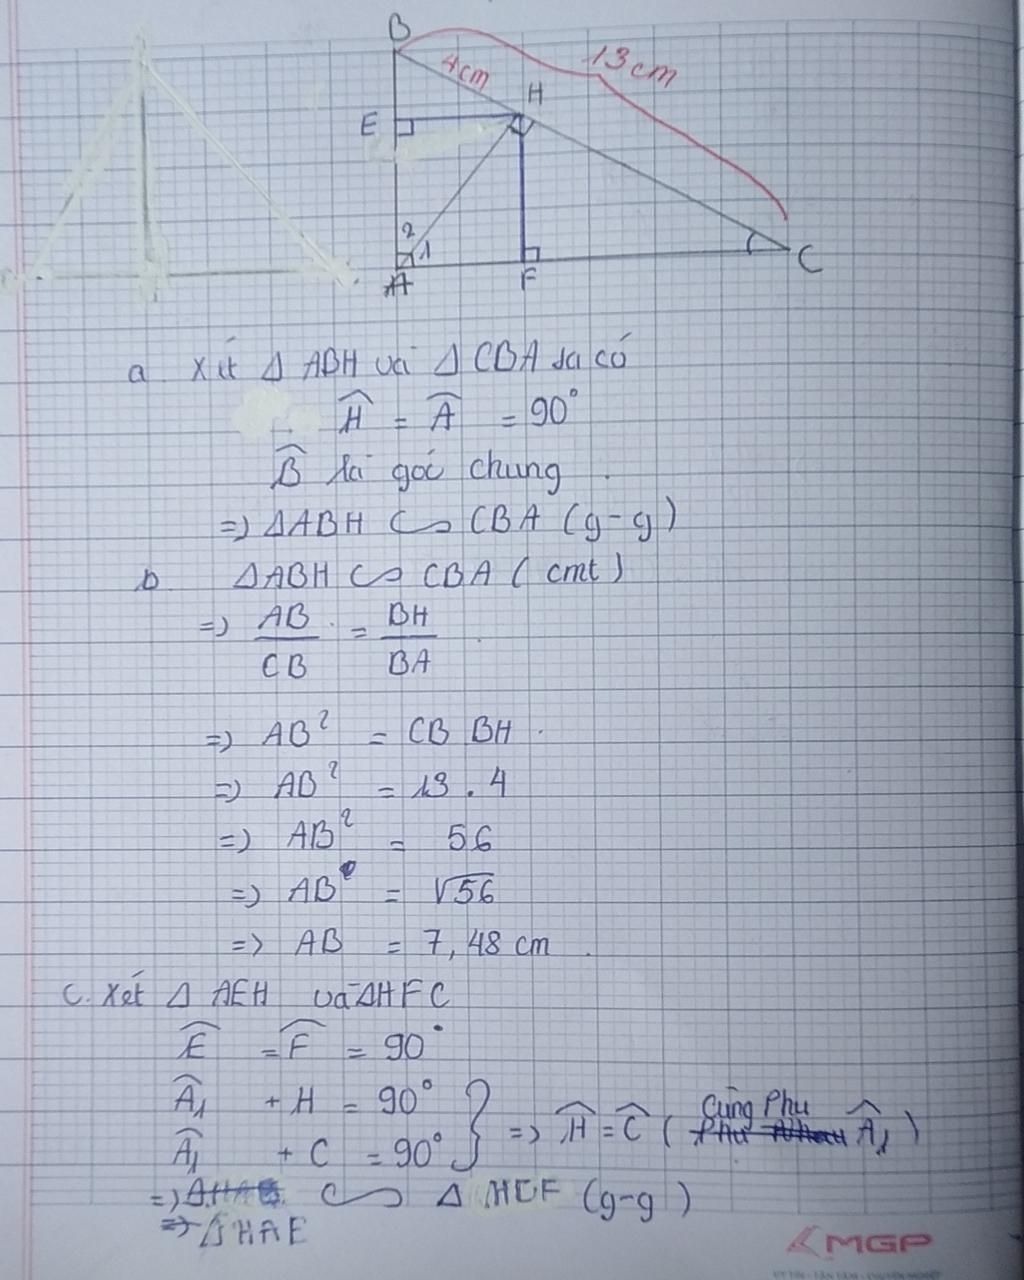 B
4cm
13cm
H
E
2
1
A
F
C
a. Xét Δ ABH và Δ CBA ta có
Ĥ = Â = 90°
B̂ là góc chung.
=> ΔABH ∽ CBA (g-g)
b ΔABH ∽ CBA (cmt)
=> AB/CB = BH/BA
=> AB² = CB BH.
=> AB² = 13.4
=> AB² = 56
=> AB = √56
=> AB = 7,48 cm.
C. Xét Δ AEH và ΔHFC
Ê = F̂ = 90°
Â₁ + H = 90°
Â₁ + C = 90° } => Ĥ = Ĉ (Cùng Phụ Â₁)
=> ∽ Δ HCF (g-g)
=> ΔHAE
MGP